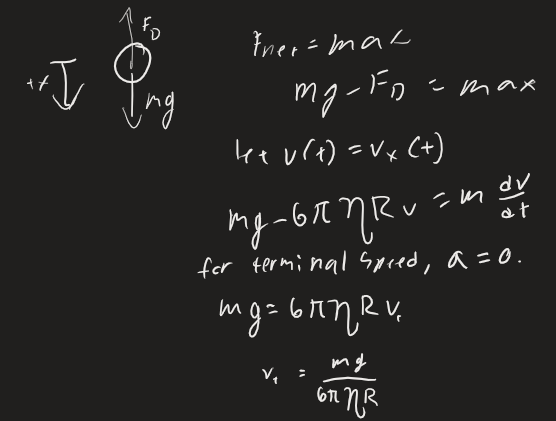 F_D
+x
mg
F_net = ma
mg - F_D = ma_x
let v(t) = v_x(t)
mg - 6πηRv = m dv/dt
for terminal speed, a = 0.
mg = 6πηRv_t
v_t = mg/6πηR